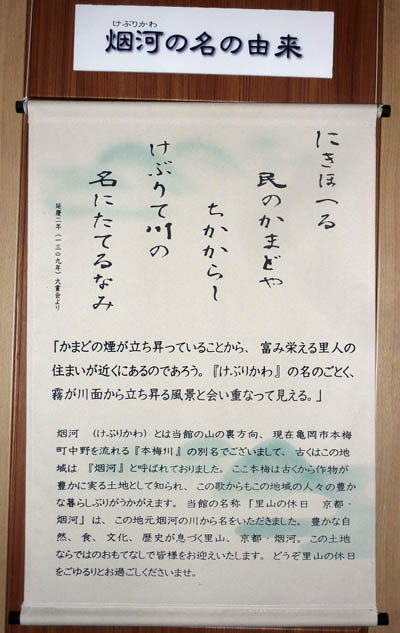 けぶりかわ
烟河の名の由来
にきほへる
民のかまどや
ちかからし
けぶりて川の
名にたてるなみ
延慶二年(一三〇九年)大嘗会より
「かまどの煙が立ち昇っていることから、富み栄える里人の
住まいが近くにあるのであろう。『けぶりかわ』の名のごとく、
霧が川面から立ち昇る風景と会い重なって見える。」
烟河　(けぶりかわ)とは当館の山の裏方向、現在亀岡市本梅
町中野を流れる『本梅川』の別名でございまして、古くはこの地
域は『烟河』と呼ばれておりました。ここ本梅は古くから作物が
豊かに実る土地として知られ、この歌からもこの地域の人々の豊か
な暮らしぶりがうかがえます。当館の名称「里山の休日　京都・
烟河」は、この地元烟河の川から名をいただきました。豊かな自
然、食、文化、歴史が息づく里山、京都・烟河。この土地
ならではのおもてなしで皆様をお迎えいたします。どうぞ里山の休日
をごゆるりとお過ごしくださいませ。